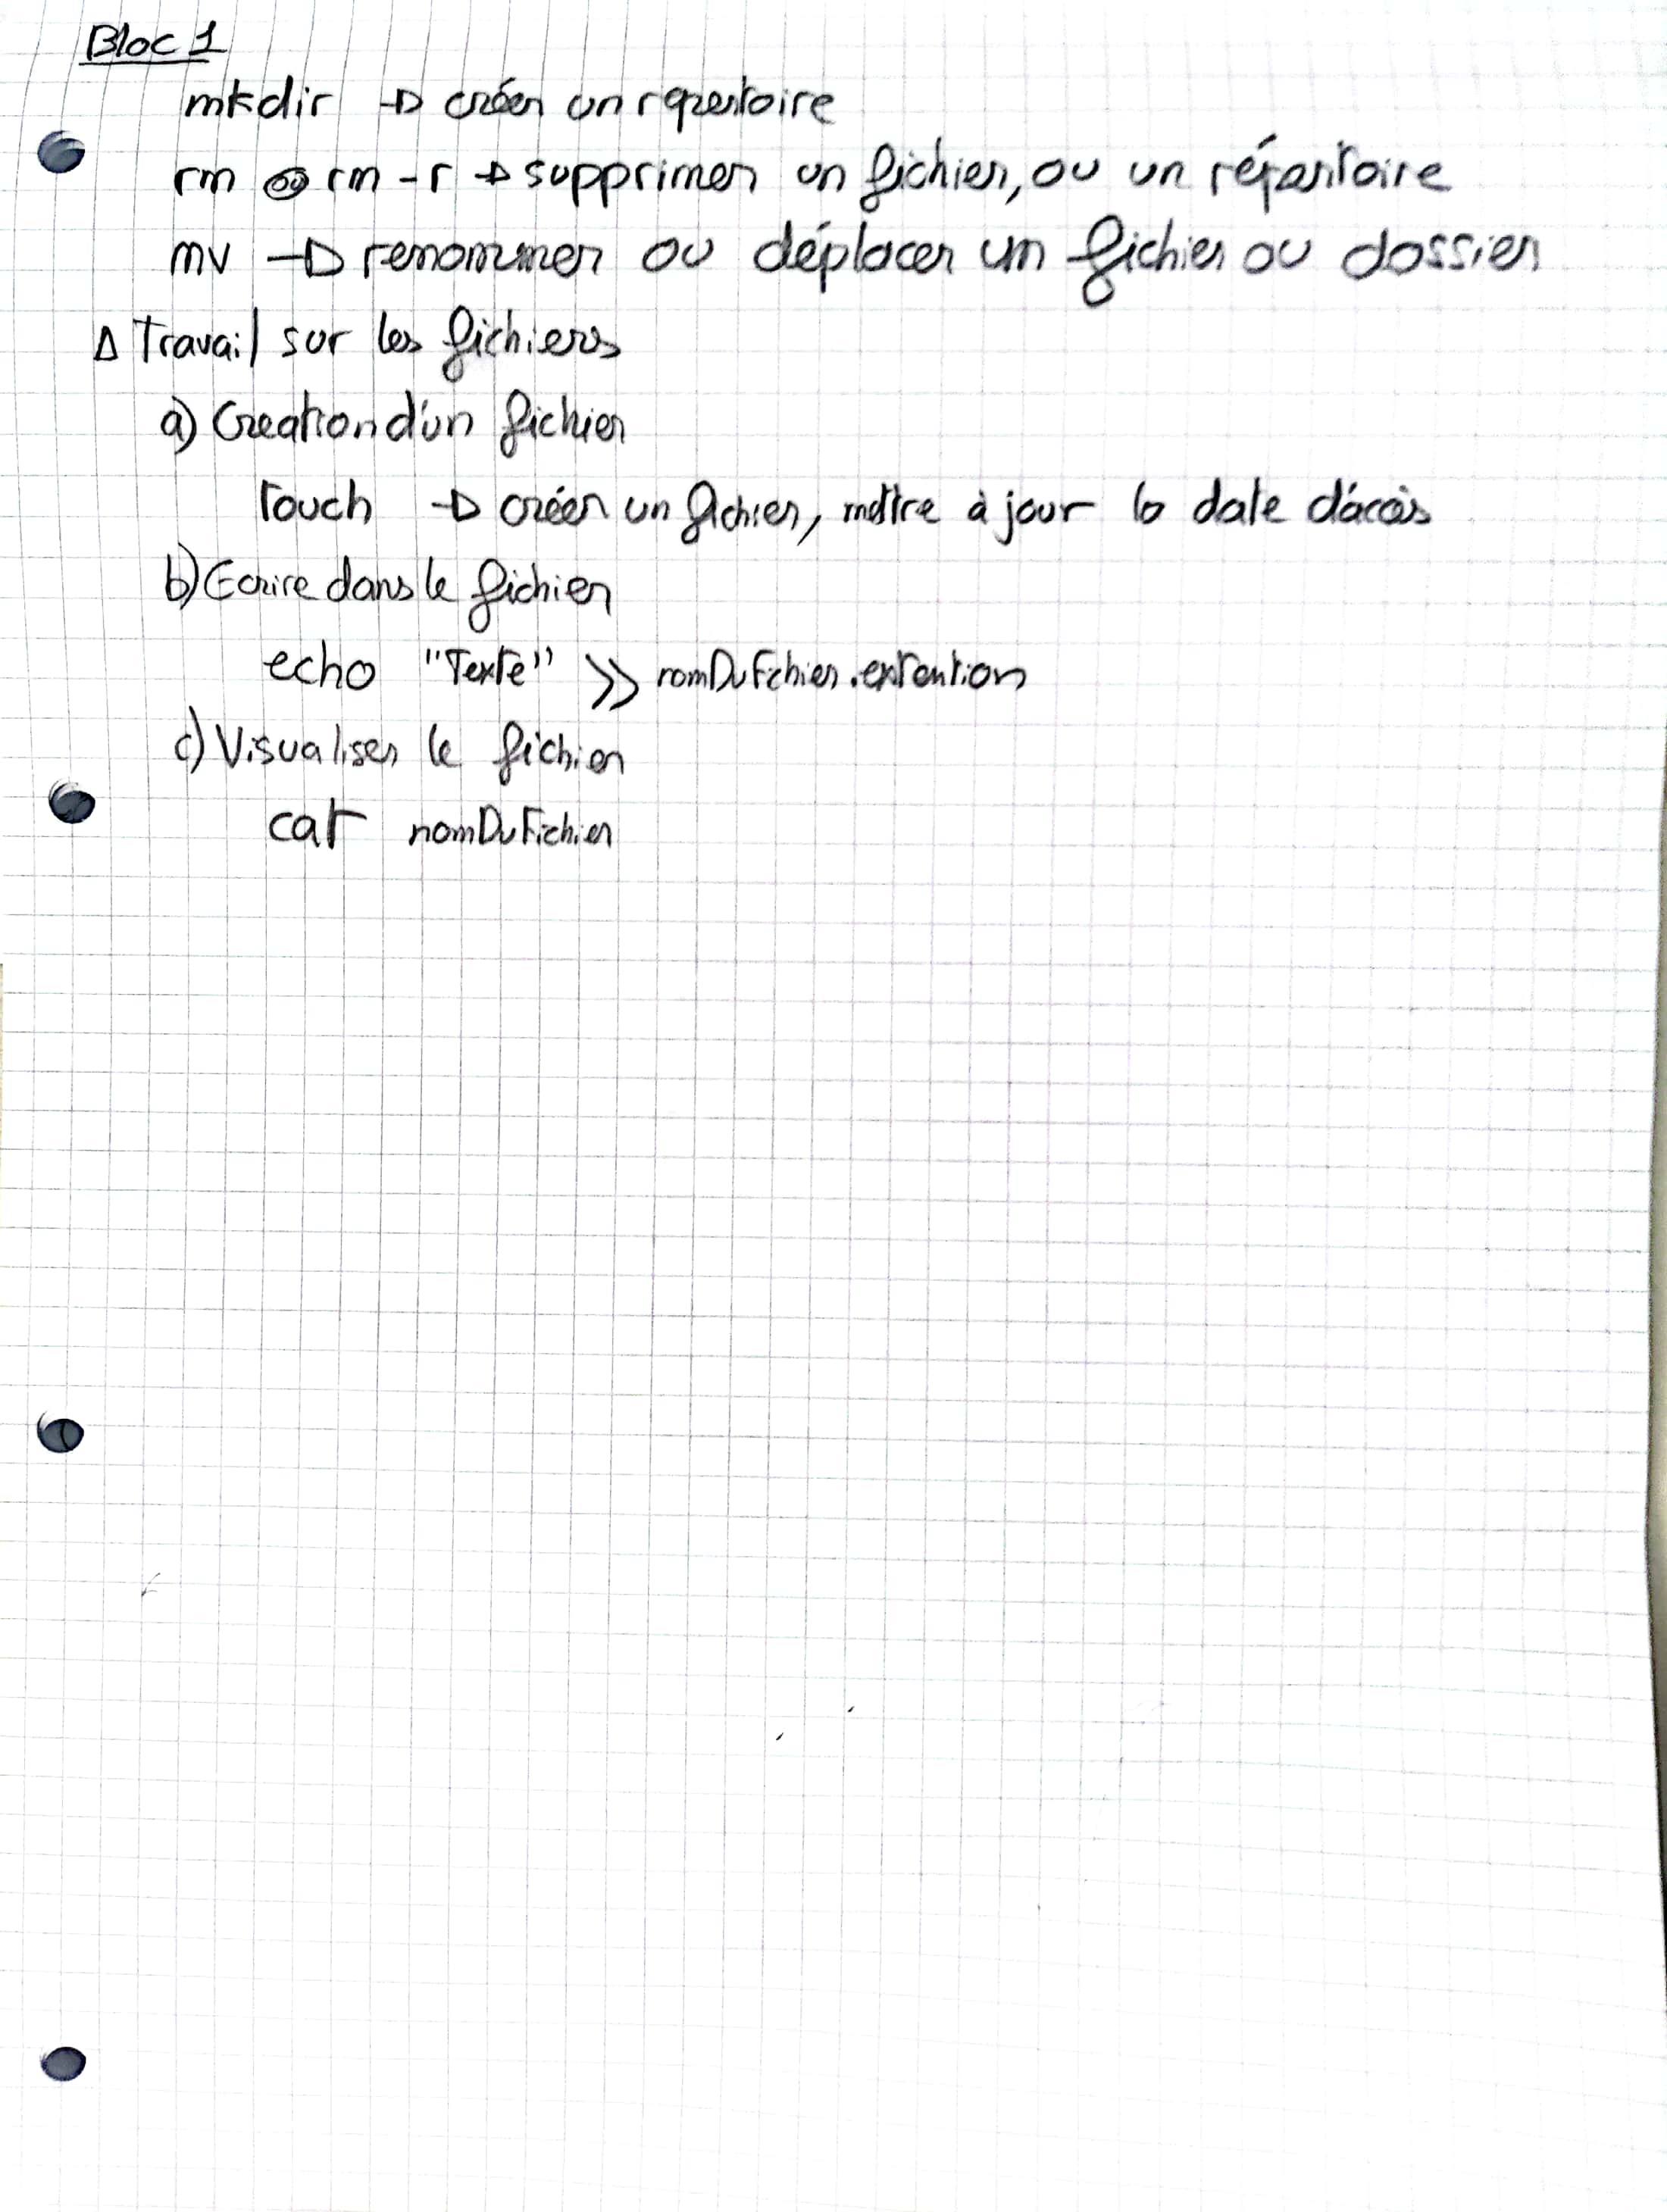 Bloc 1
mkdir → créer un repertoire
rm ou rm -r → supprimer un fichier, ou un répertoire
mv → renommer ou déplacer un fichier ou dossier
Δ Travail sur les fichiers
a) Creation d'un fichier
Touch → créer un fichier, mettre à jour la date d'accès
b) Ecrire dans le fichier
echo "Texte" >> nomDuFichier.extention
c) Visualiser le fichier
cat nomDuFichier